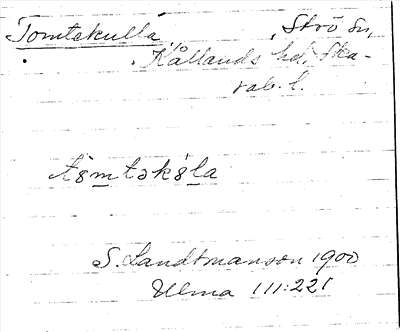 Tomtekulla, Strö sn,
Kållands hd, Ska-
rab. l.
tomtəkola
S. Landtmanson 1900
Ulma 111:221